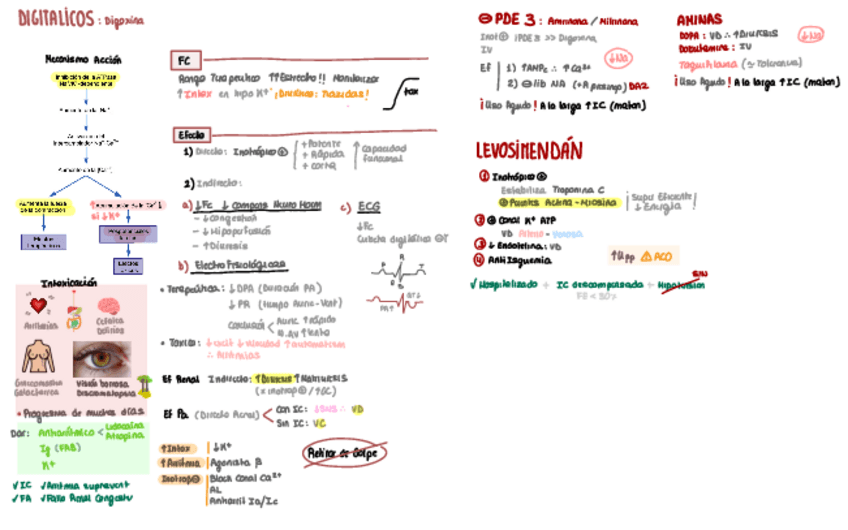 DIGITALICOS : Digoxina
Mecanismo Acción
Inhibición de la ATPasa
Na+/K+ dependiente
Aumento de Na+
intercambiador Na+ Ca2+
Aumento de [Ca2+]
Aumenta la fuerza
de la contracción
si ↓K+
Efectos
terapéuticos
Efectos
Intoxicación
Arritmias
Cefalea
Delirios
Ginecomastia
Galactorrea
Visión borrosa
Discromatopsia
• Progresiva de muchos días
Dar: Antiarrítmico < Lidocaína
Atropina
Ig (FAB)
K+
✓ IC ✓ Arritmia supravent
✓ FA ✓ Falla Renal Congestiv
FC
Rango Terapeutico ↑↑Estrecho!! Monitorizar
↑Intox en hipo K+
tox
Efecto
1) Directo: Inotrópico ⊕
+Potente
+Rápida
+corta
↑ Capacidad
funcional
2) Indirecto:
a) ↓FC ↓ Compens Neuro Horm
- ↓Congestión
- ↓Hipoperfusión
- ↑Diuresis
b) Electrofisiológicas
• Terapeútica: ↓DPA (Duración PA)
↓PR (tiempo Auric-Vent)
Conclusión < Auric ↑rápido
N.AV ↑lento
• Toxico: ↓excit ↓velocidad ↑automatism
∴ Arritmias
c) ECG
↓FC
Cubeta digitálica ⊖T
P
R
T
PR↑
QT↓
Ef Renal Indirecto: ↑Diuresis ↑Natriuresis
(x inotrop ⊕ / ↑GC)
Ef PA (Directo Acral) < Con IC: ↓SNS ∴ VD
Sin IC: VC
↑Intox ↓K+
↑Arritmia Agonista β
Inotrop⊖ Block Canal Ca2+
AL
Antiarrit Ia/Ic
Retirar de Golpe
⊖ PDE 3 : Amrinona / Milrinona
Inot⊕ iPDE3 >> Digoxina
IV
↓Na
Ef 1) ↑AMPc ∴ ↑Ca2+
2) ⊖lib NA (+R presinap) DA2
¡Uso Agudo! A lo larga ↑IC (matan)
AMINAS
DOPA : VD ∴ ↑DIURESIS
Dobutamina : IV
↓Na
Taquifilaxia (≈ Tolerancia)
¡Uso Agudo! A la larga ↑IC (matan)
LEVOSIMENDÁN
1 Inotrópico ⊕
Estabiliza Troponina C
⊕Puentes Actina - Miosina
Super Eficiente
↓Energía !
2 ⊕ Canal K+ ATP
VD Arteno - Venosa
3 ↓ Endotelina: VD
4 AntiIsquemia
ACO
✓ Hospitalizado + IC descompensada + Hipotensión
SIN
FE < 30%